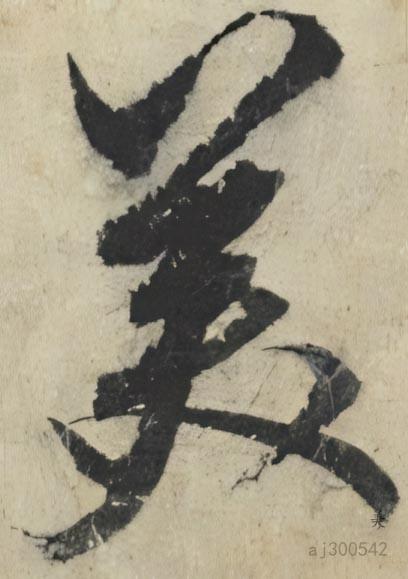 美
aj300542